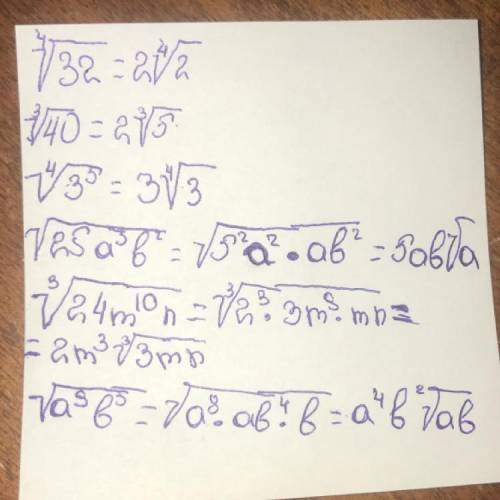 ∜32 = 2∜2
∛40 = 2∛5
∜3⁵ = 3∜3
√25a³b² = √5²a²·ab² = 5ab√a
∛24m¹⁰n = ∛2³·3m⁹·mn =
= 2m³∛3mn
√a⁹b⁵ = √a⁸·ab⁴·b = a⁴b²√ab